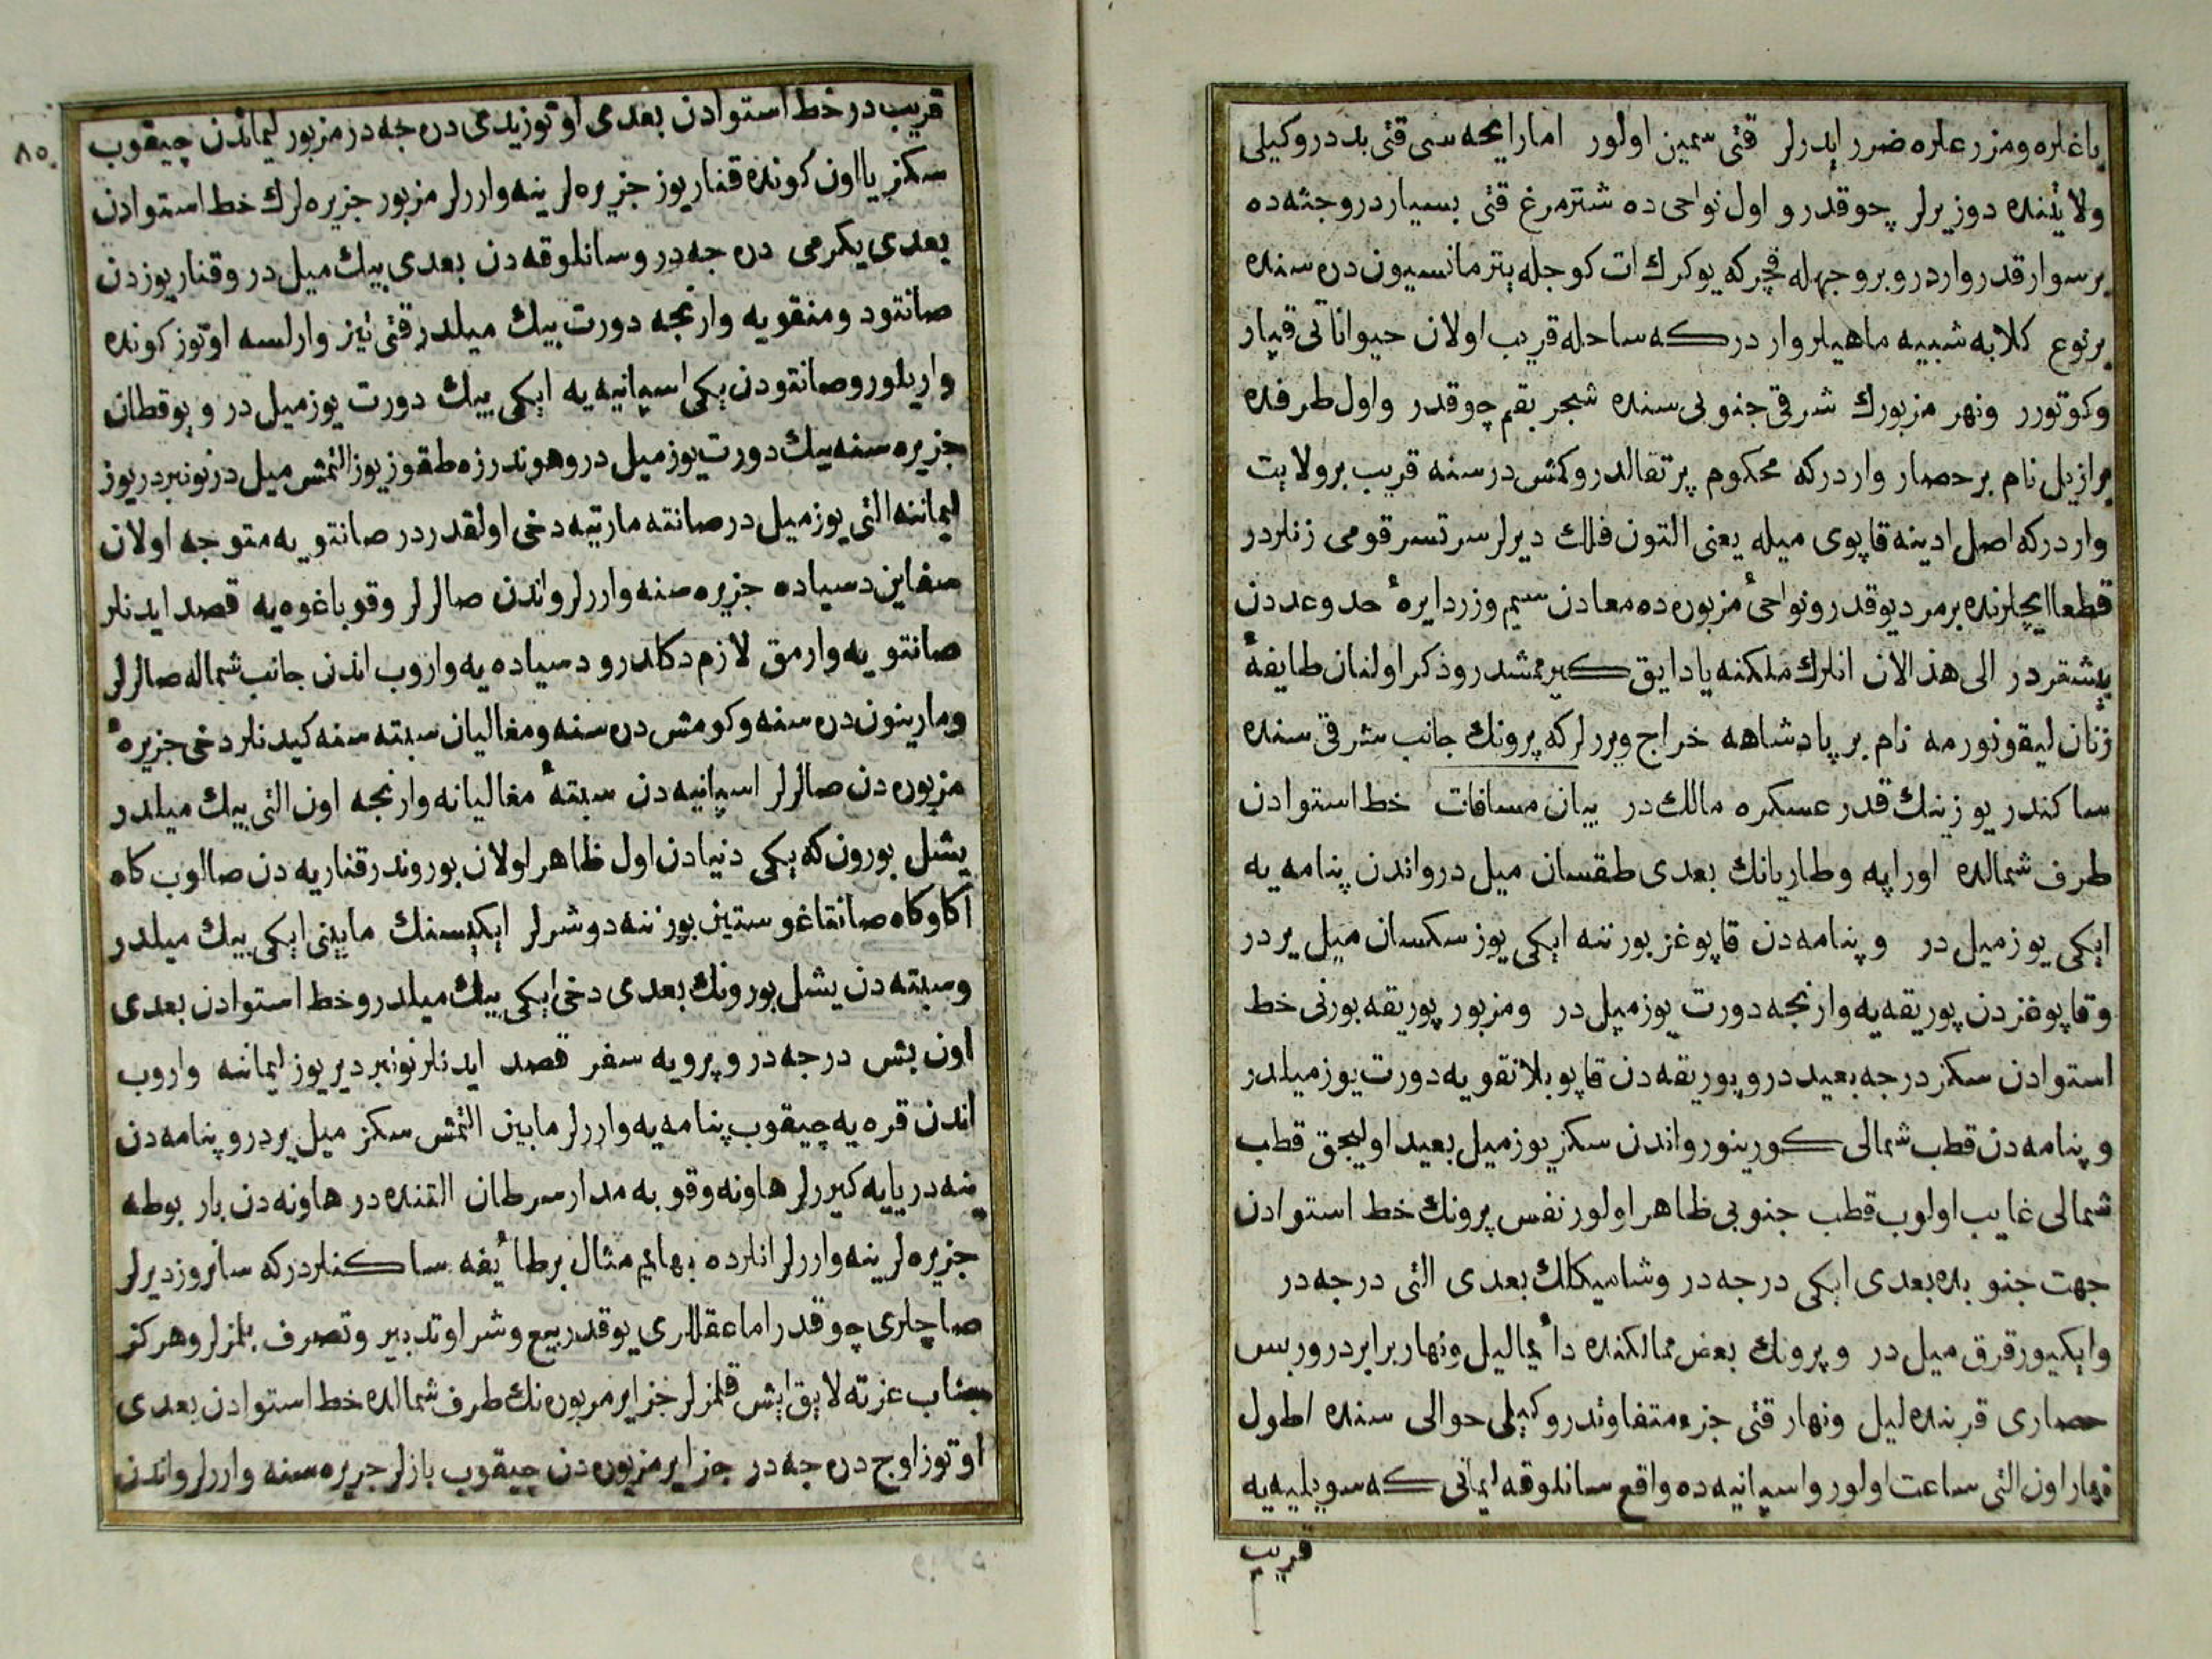 باغلره ومزرعلره ضرر ایدرلر قتی سمین اولور اما رایحه سی قتی بد در وکیلی
ولایتنده دوزیرلر چوقدر و اول نواحی ده شترمرغ قتی بسیار در وجثه ده
بر سوار قدر وارد ر و بر وجهله قچر که یوکرك ات کوجله یتر مانسیون دره سنده
بر نوع کلابه شبیه ماهیلر وار در که ساحله قریب اولان حیواناتی قپار
وکوتورر ونهر مزبورك شرقی جنوبی سنده شجر بقم چوقدر و اول طرفده
برازیل نام بر حصار وار در که محکوم پرتقالدر وکمش دره سنه قریب بر ولایت
وار در که اصل ادینه قاپوی میله یعنی التون فلك دیرلر سرتسر قومی زنلردر
قطعا ایچلرنده بر مرد یوقدر ونواحئ مزبوره ده معادن سیم وزر دایرهٔ حد وعددن
بیشتردر الی هذا الان انلرك ملکنه یاد ایق کیرممشدر وذکر اولنان طایفهٔ
زنان لیقونورمه نام بر پادشاهه خراج ویررلر که پرونك جانب شرقی سنده
ساکندر یوز بیك قدر عسکره مالك در بیان مسافات خط استوادن
طرف شمالده اورا په وطاریانك بعدی طقسان میل در واندن پنامه یه
ایکی یوز میل در وپنامه دن قاپوغز بورننه ایکی یوز سکسان میل یر در
وقاپوغزدن پوریقه یه وارنجه دورت یوز میل در ومزبور پوریقه بورنی خط
استوادن سکز درجه بعید در وپوریقه دن قاپوبلانقویه دورت یوز میلدر
وپنامه دن قطب شمالی کورینور واندن سکز یوز میل بعید اولیجق قطب
شمالی غایب اولوب قطب جنوبی ظاهر اولور نفس پرونك خط استوادن
جهت جنوبده بعدی ایکی درجه در وشامیکلك بعدی التی درجه در
وایکیوز قرق میل در وپرونك بعض ممالکنده دائما لیل ونهار برابر در ورس
حصاری قربنده لیل ونهار قتی جزء متفاوتدر وکیلی حوالی سنده اطول
نهار اون التی ساعت اولور واسپانیه ده واقع سانلوقه لیمانی که سویلیه یه
قریب
٨٥
قریب در خط استوادن بعدی اوتوز یدی درجه در مزبور لیماندن چیقوب
سکز یا اون کونده قناریوز جزیره لرینه واررلر مزبور جزیره لرك خط استوادن
بعدی یکرمی درجه در وسانلوقه دن بعدی بیك میل در وقناریوزدن
صانتود ومنقویه وارنجه دورت بیك میلدر قتی تیز وارلسه اوتوز کونده
واریلور وصانتودن یکی اسپانیه یه ایکی بیك دورت یوز میل در ویوقطان
جزیره سنه بیك دورت یوز میل در وهوندرزه طقوز یوز التمش میل در نونبردریوز
لیماننه التی یوز میل در صانته مارتیه دخی اولقدر در صانتویه متوجه اولان
سفاین دسیاده جزیره سنه واررلر واندن صالرلر وقوباغوه یه قصد ایدنلر
صانتویه وارمق لازم دکلدر ودسیاده یه واروب اندن جانب شماله صالرلر
ومارینون دره سنه وکومش دره سنه ومغالیان سبته سنه کیدنلر دخی جزیرهٔ
مزبوره دن صالرلر اسپانیه دن سبتهٔ مغالیانه وارنجه اون التی بیك میلدر
یشل بورون که یکی دنیادن اول ظاهر اولان بوروندر قناریه دن صالوب کاه
اکا وکاه صانتاغوستین بورننه دوشرلر ایکیسنك مابینی ایکی بیك میلدر
وسبته دن یشل بورونك بعدی دخی ایکی بیك میلدر وخط استوادن بعدی
اون بش درجه در وپرویه سفر قصد ایدنلر نونبردیریوز لیماننه واروب
اندن قره یه چیقوب پنامه یه واررلر مابین التمش سکز میل یر در وپنامه دن
ینه دریایه کیررلر هاونه وقوبه مدار سرطان التنده در هاونه دن بار بوطه
جزیره لرینه واررلر انلرده بهایم مثال بر طائفه ساکنلردر که سانروز دیرلر
صاچلری چوقدر اما عقللری یوقدر بیع وشرا وتدبیر وتصرف بلمزلر وهرکز
جناب عزته لایق ایش قلمزلر جزایر مزبوره نك طرف شمالده خط استوادن بعدی
اوتوز اوچ درجه در جزایر مزبوره دن چیقوب بازلر جزیره سنه واررلر واندن